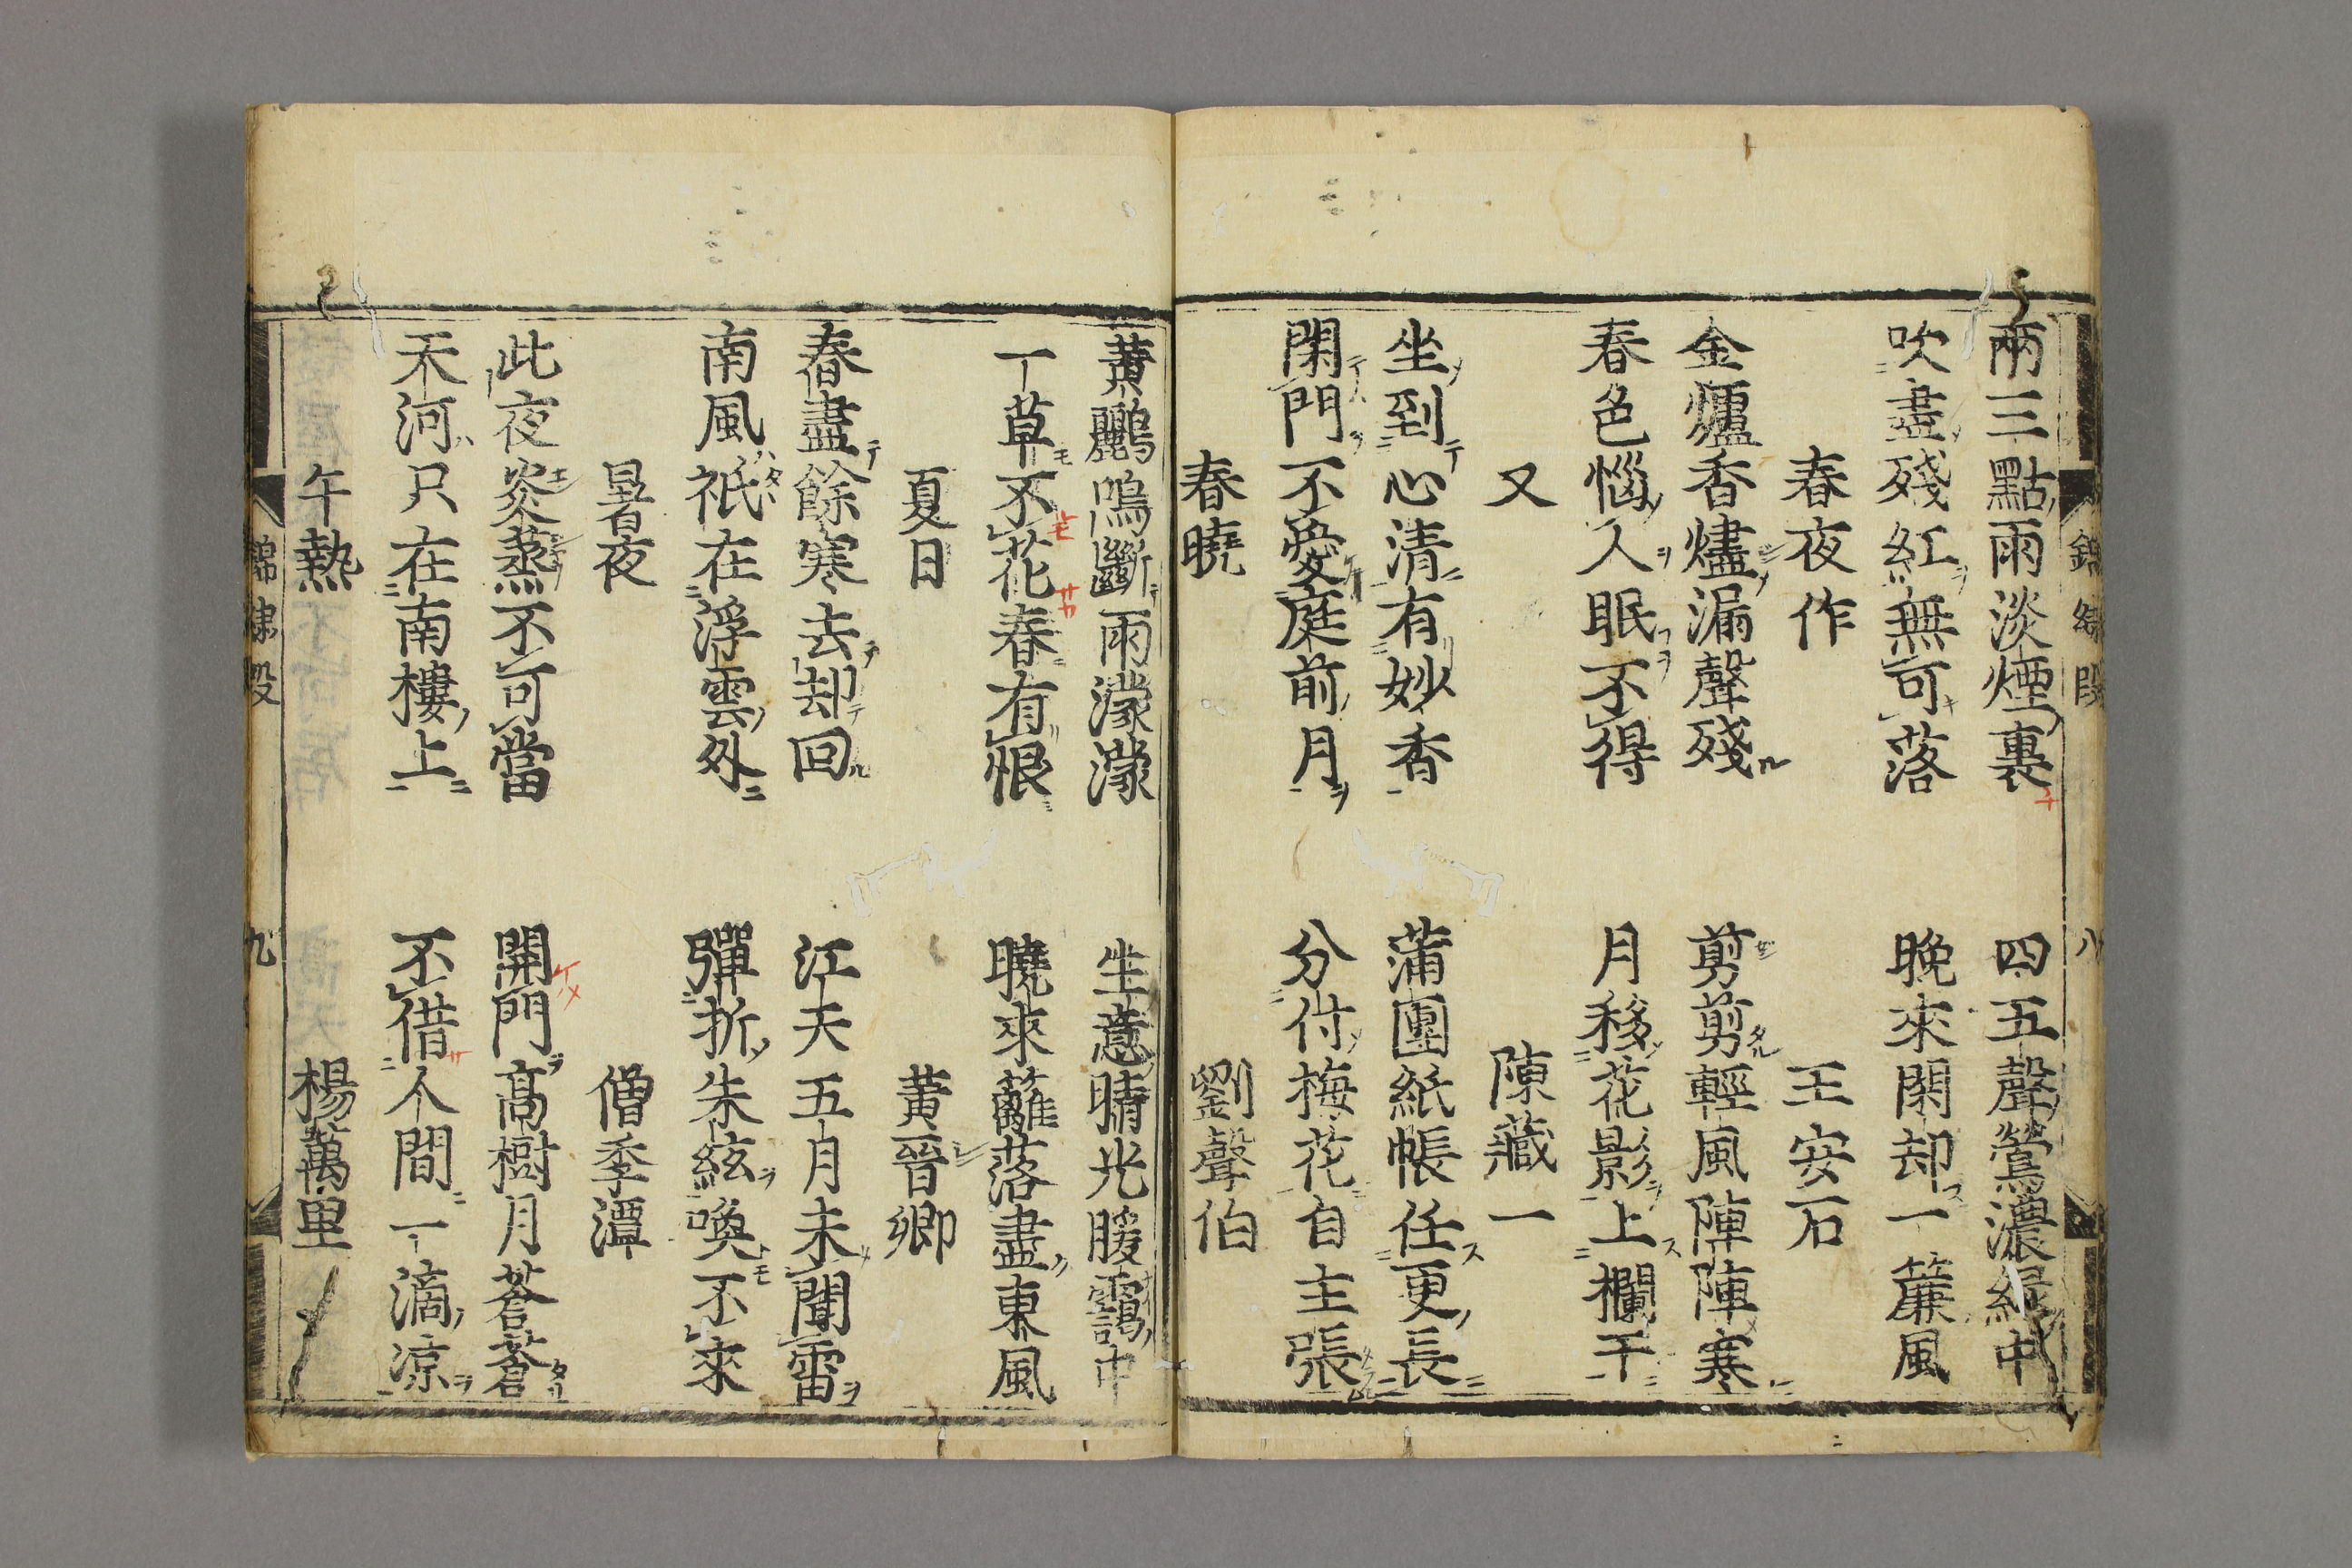 錦繍段 八
兩三點雨淡煙裏 四五聲鶯濃緑中
吹盡殘紅無可落 晩來閑却一簾風
春夜作 王安石
金爐香燼漏聲殘 剪剪輕風陣陣寒
春色惱人眠不得 月移花影上欄干
又 陳藏一
坐到心清有妙香 蒲團紙帳任更長
閑門不愛庭前月 分付梅花自主張
春曉 劉聲伯
黄鸝鳴斷雨濛濛 生意晴光暖靄中
一草不花春有恨 曉來籬落盡東風
夏日 黄晉卿
春盡餘寒去却回 江天五月未聞雷
南風祇在浮雲外 彈折朱絃喚不來
暑夜 僧季潭
此夜炎蒸不可當 開門高樹月蒼蒼
天河只在南樓上 不借人間一滴凉
午熱 楊萬里
錦繍段 九